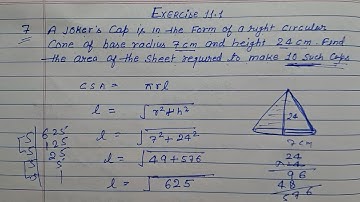 EXERCISE 11.1
7 A JOKER'S Cap is in the Form of a right Circular
Cone of base radius 7cm and height 24cm. Find
the area of the sheet required to make 10 such Caps
CSA = πrl
l = √r²+h²
l = √7²+24²
l = √49+576
l = √625
24
7cm
5 625
5 125
5 25
5 5
1
24
24
96
48
576